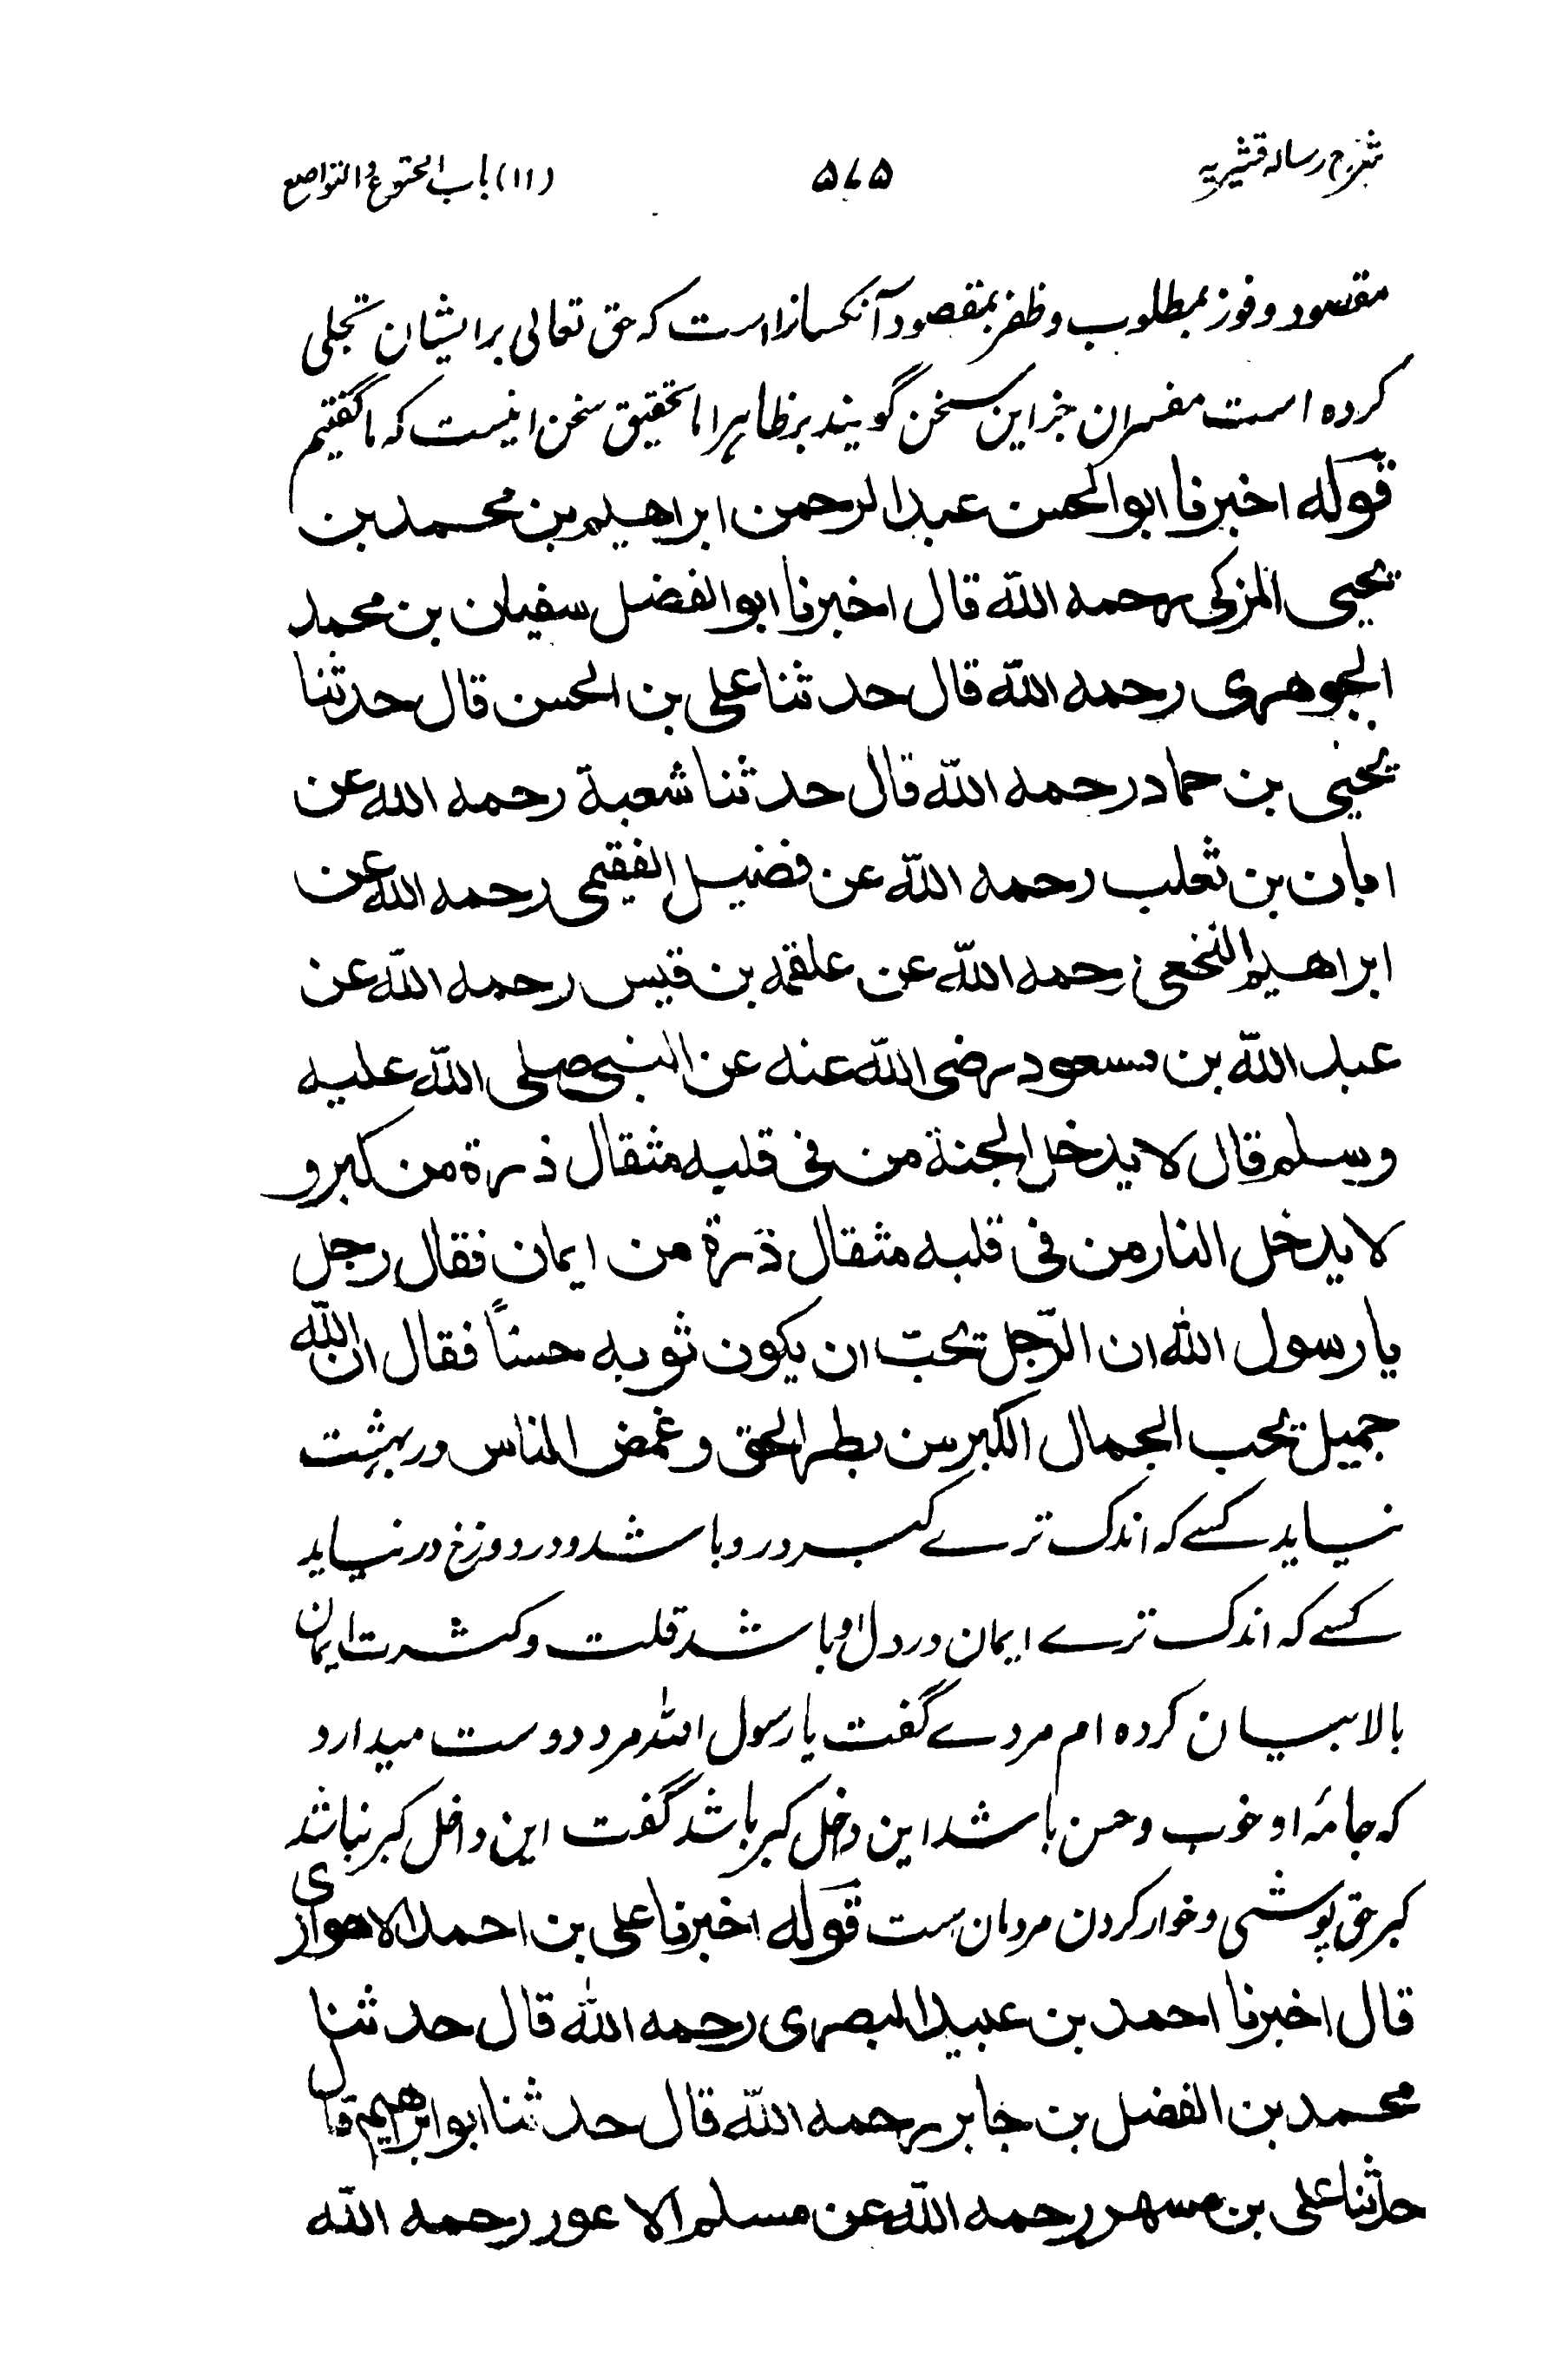 شرح رسالہ قشیریہ
۵۷۵
(۱۱) باب الخشوع و التواضع
مقصود و فوز بمطلوب و ظفر بمقصود آنکسانراست کہ حق تعالی برایشان تجلی
کردہ است مفسران جز این سخن گویند بر ظاہر اما تحقیق سخن اینست کہ ما گفتیم
قوله اخبرنا ابوالحسن عبدالرحمن ابراهیم بن محمد بن
یحیی المزکی رحمه اللّه قال اخبرنا ابوالفضل سفیان بن محمد
الجوهری رحمه اللّه قال حدثنا علی بن الحسن قال حدثنا
یحیی بن حماد رحمه اللّه قال حدثنا شعبة رحمه الله عن
ابان بن ثعلب رحمه اللّه عن فضیل الفقیمی رحمه اللّه عن
ابراهیم النخعی رحمه اللّه عن علقمه بن قیس رحمه اللّه عن
عبد اللّه بن مسعود رضی اللّه عنه عن النبی صلی اللّه علیه
وسلم قال لا یدخل الجنة من فی قلبه مثقال ذرة من کبر و
لا یدخل النار من فی قلبه مثقال ذرة من ایمان فقال رجل
یا رسول الله ان الرّجل یحبّ ان یکون ثوبه حسناً فقال ان اللّه
جمیل یحب الجمال الکبر من بطر الحق و غمض الناس در بہشت
نیاید کسے کہ اندک ترے کبر درو باشد و در دوزخ در نیاید
کسے کہ اندک ترے ایمان در دل او باشد قلت و کثرت ایمان
بالا بیان کردہ ام مردے گفت یا رسول اللہ مرد دوست میدارد
کہ جامۂ او خوب و حسن باشد این داخل کبر باشد گفت این داخل کبر نباشد
کبر حق پوشی و خوار کردن مردمان ست قوله اخبرنا علی بن احمد الاهوازی
قال اخبرنا احمد بن عبید البصری رحمه الله قال حدثنا
محمد بن الفضل بن جابر رحمه اللّه قال حدثنا ابو ابراهیم قال
حدثنا علی بن مسهر رحمه اللّه عن مسلم الاعور رحمه اللّه